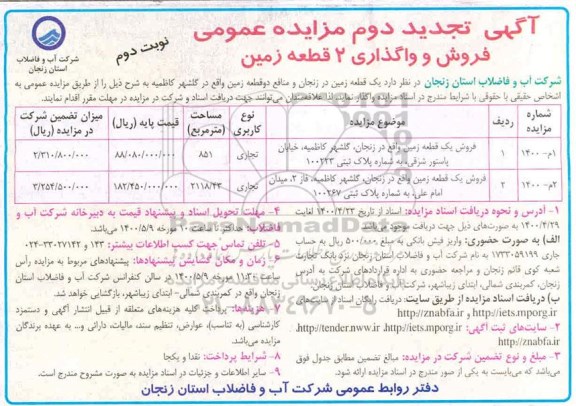 آگهی تجدید دوم مزایده عمومی
فروش و واگذاری ۲ قطعه زمین
نوبت دوم
شرکت آب و فاضلاب
استان زنجان
شرکت آب و فاضلاب استان زنجان در نظر دارد یک قطعه زمین در زنجان و منافع دوقطعه زمین واقع در گلشهر کاظمیه به شرح ذیل را از طریق مزایده عمومی به
اشخاص حقیقی یا حقوقی با شرایط مندرج در اسناد مزایده واگذار نماید. لذا علاقمندان می‌توانند جهت دریافت اسناد و شرکت در مزایده در مهلت مقرر اقدام نمایند.
شماره مزایده ردیف موضوع مزایده نوع کاربری مساحت (مترمربع) قیمت پایه (ریال) میزان تضمین شرکت در مزایده (ریال)
۱م-۱۴۰۰ ۱ فروش یک قطعه زمین واقع در زنجان، گلشهر کاظمیه، خیابان پاستور شرقی، به شماره پلاک ثبتی ۱۰۰۲۴۳ تجاری ۸۵۱ ۸۸/۰۸۰/۰۰۰/۰۰۰ ۲/۳۱۰/۸۰۰/۰۰۰
۲م-۱۴۰۰ ۲ فروش یک قطعه زمین واقع در زنجان، گلشهر کاظمیه، فاز ۲، میدان امام علی، به شماره پلاک ثبتی ۱۰۰۲۶۷ تجاری ۲۱۱۸/۴۳ ۱۸۲/۴۵۰/۰۰۰/۰۰۰ ۳/۲۵۴/۵۰۰/۰۰۰
۱- آدرس و نحوه دریافت اسناد مزایده: اسناد از تاریخ ۱۴۰۰/۴/۲۳ لغایت
۱۴۰۰/۴/۲۹ به صورت‌های ذیل جهت دریافت موجود می‌باشد
الف) به صورت حضوری: واریز فیش بانکی به مبلغ ۵۰۰/۰۰۰ ریال به حساب
جاری ۱۷۳۳۰۵۹۱۹۹ به نام شرکت آب و فاضلاب استان زنجان نزد بانک تجارت
شعبه کوی قائم زنجان و مراجعه حضوری به اداره قراردادهای شرکت به آدرس
زنجان، کمربندی شمالی، ابتدای زیباشهر، شرکت آب و فاضلاب استان زنجان.
ب) دریافت اسناد مزایده از طریق سایت: دریافت رایگان اسناد از سایت‌های
http://iets.mporg.ir و http://znabfa.ir
۲- سایت‌های ثبت آگهی: http://iets.mporg.ir، http://tender.nww.ir،
http://znabfa.ir
۳- مبلغ و نوع تضمین شرکت در مزایده: مبالغ تضمین مطابق جدول فوق
می‌باشد که می‌بایست به یکی از صور مندرج در اسناد مزایده ارائه شود.
۴- مهلت تحویل اسناد و پیشنهاد قیمت به دبیرخانه شرکت آب و
فاضلاب: حداکثر تا ساعت ۱۰ مورخه ۱۴۰۰/۵/۹ می‌باشد.
۵- تلفن تماس جهت کسب اطلاعات بیشتر: ۱۲۳ و ۳۳۰۲۷۱۴۲-۰۲۴
۶- زمان و مکان گشایش پیشنهادها: پیشنهادهای مربوط به مزایده رأس
ساعت ۱۱:۳۰ مورخه ۱۴۰۰/۵/۹، در سالن کنفرانس شرکت آب و فاضلاب استان
زنجان واقع در کمربندی شمالی- ابتدای زیباشهر، بازگشایی خواهد شد.
۷- هزینه‌ها: پرداخت کلیه هزینه‌های متعلقه از قبیل انتشار آگهی و دستمزد
کارشناسی (به تناسب)، عوارض، تنظیم سند، مالیات، دارائی و... به عهده برندگان
مزایده می‌باشد.
۸- شرایط پرداخت: نقدا و یکجا
۹- سایر اطلاعات و جزئیات در اسناد مزایده به صورت مشروح مندرج است.
دفتر روابط عمومی شرکت آب و فاضلاب استان زنجان